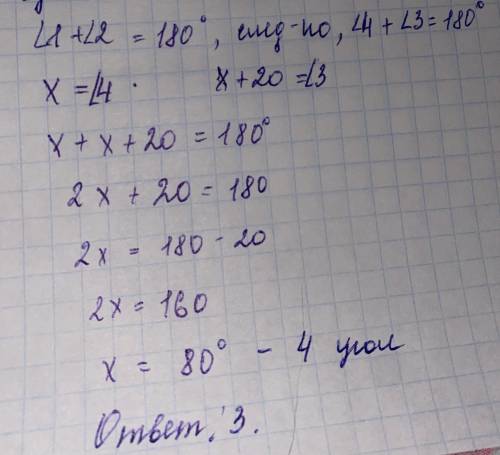 ∠1+∠2 = 180°, след-но, ∠4 + ∠3 = 180°
x = ∠4. x + 20 = ∠3
x + x + 20 = 180°
2x + 20 = 180
2x = 180 - 20
2x = 160
x = 80° - 4 угол
Ответ: 3.